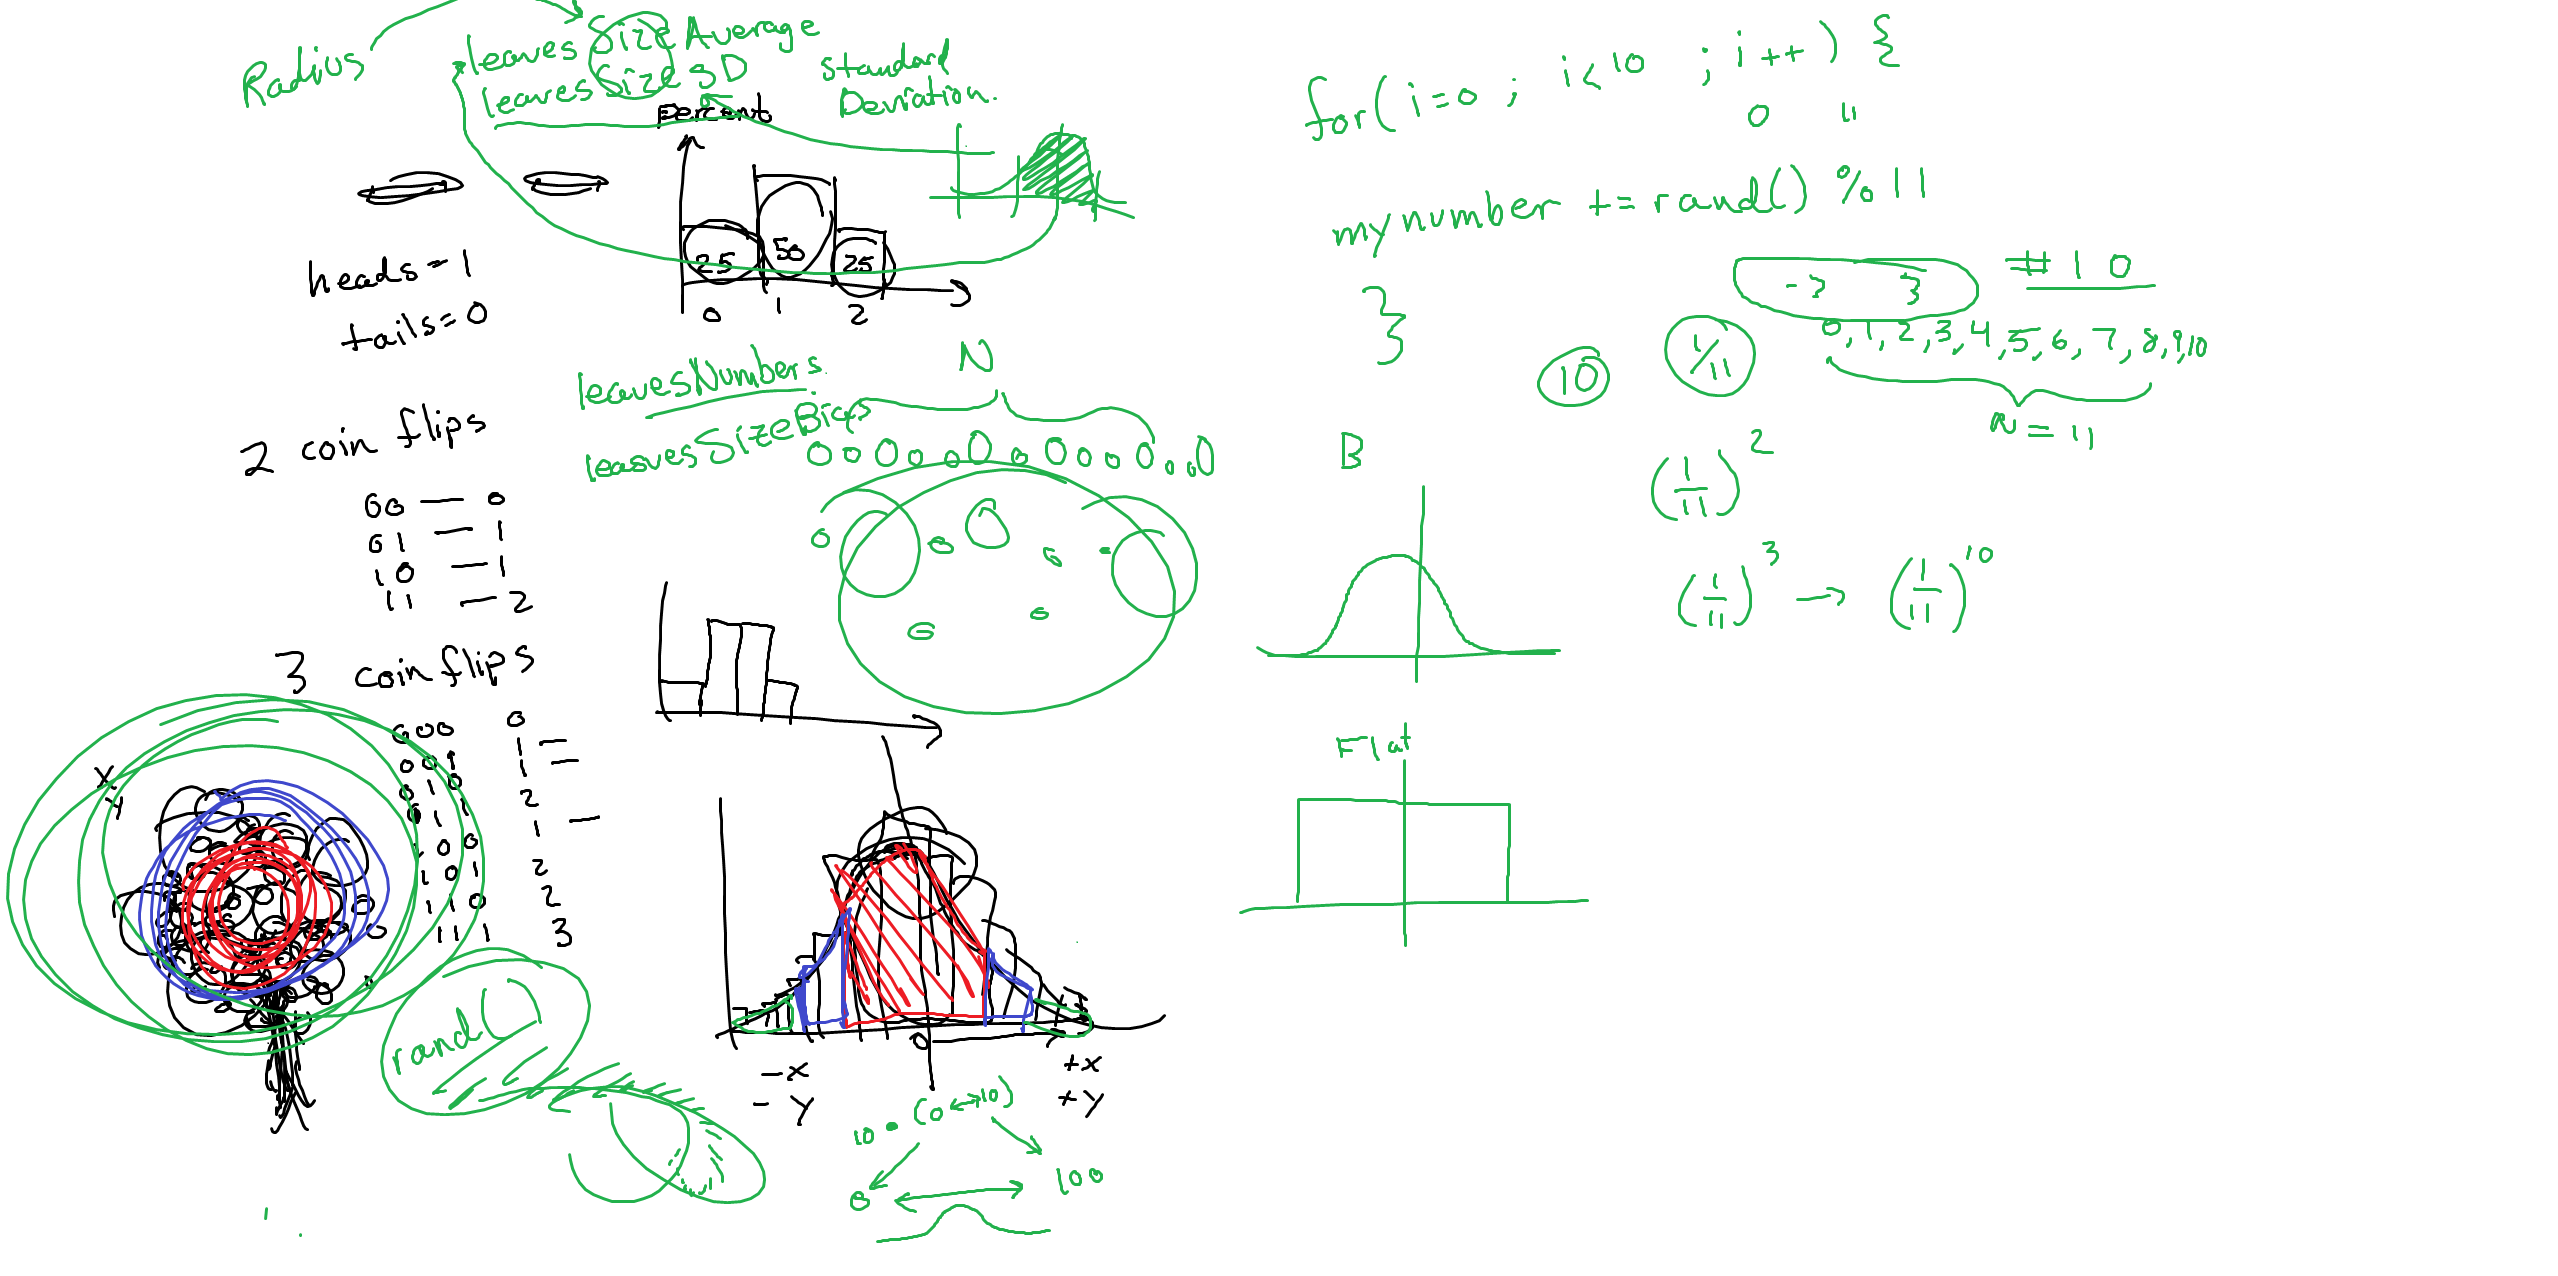 Radius
leavesSizeAverage
leavesSizeSD
standard
Deviation.
Percent
25 50 25
0 1 2
heads = 1
tails = 0
2 coin flips
00 — 0
01 — 1
10 — 1
11 — 2
3 coin flips
000 0
001 1
010 1
011 2
100 1
101 2
110 2
111 3
X
Y
rand()
leavesNumbers
leasvesSizeBias
N
0
-X +X
-Y +Y
10 • (0 ↔ 10)
0 ↔ 100
for( i=0 ; i<10 ; i++ ) {
0 11
mynumber += rand() % 11
}
-3 3
# 10
10
1/11
0, 1, 2, 3, 4, 5, 6, 7, 8, 9, 10
n = 11
(1/11)^2
(1/11)^3 → (1/11)^10
B
Flat